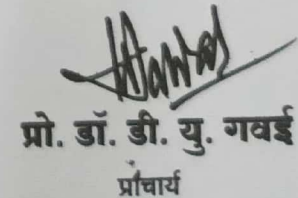 प्रो. डॉ. डी. यु. गवई
प्रांचार्य